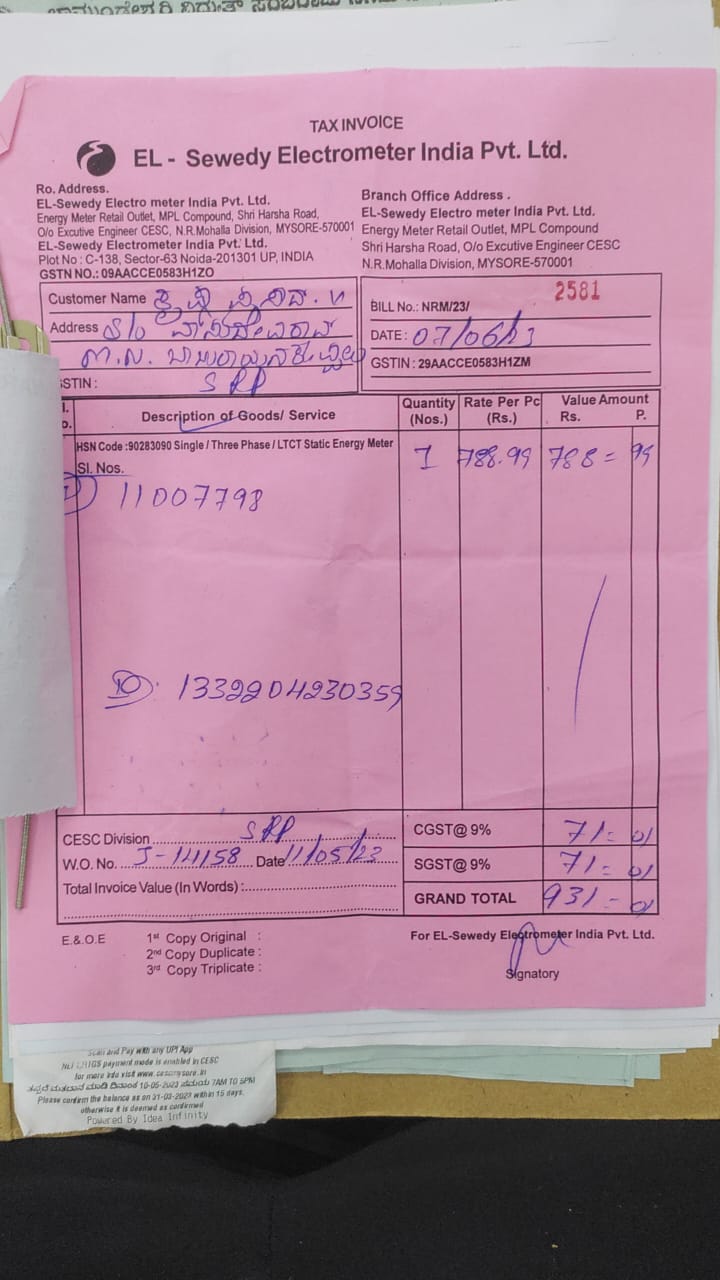 TAX INVOICE
EL - Sewedy Electrometer India Pvt. Ltd.
Ro. Address.
EL-Sewedy Electro meter India Pvt. Ltd.
Energy Meter Retail Outlet, MPL Compound, Shri Harsha Road,
O/o Excutive Engineer CESC, N.R.Mohalla Division, MYSORE-570001
EL-Sewedy Electrometer India Pvt. Ltd.
Plot No : C-138, Sector-63 Noida-201301 UP, INDIA
GSTN NO.: 09AACCE0583H1ZO
Branch Office Address .
EL-Sewedy Electro meter India Pvt. Ltd.
Energy Meter Retail Outlet, MPL Compound
Shri Harsha Road, O/o Excutive Engineer CESC
N.R.Mohalla Division, MYSORE-570001
Customer Name
Address S/o ವಾಸುದೇವರಾವ್
STIN : SRP
BILL No.: NRM/23/ 2581
DATE : 07/06/23
GSTIN : 29AACCE0583H1ZM
Description of Goods/ Service Quantity (Nos.) Rate Per Pc (Rs.) Value Amount Rs. P.
HSN Code :90283090 Single / Three Phase / LTCT Static Energy Meter 1 788.99 788 = 99
Sl. Nos.
1) 11007798
ID: 1332204230359
CESC Division SRP
W.O. No. J-14158 Date 11/05/23
Total Invoice Value (In Words) :
CGST@ 9% 71= 01
SGST@ 9% 71= 01
GRAND TOTAL 931 - 01
E.&.O.E
1st Copy Original :
2nd Copy Duplicate :
3rd Copy Triplicate :
For EL-Sewedy Electrometer India Pvt. Ltd.
Signatory
Scan and Pay with any UPI App
payment mode is enabled in CESC
for more info visit www.cescmysore.in
10-05-2023 7AM TO 5PM
Please confirm the balance as on 31-03-2023 within 15 days.
otherwise it is deemed as confirmed
Powered By Idea Infinity